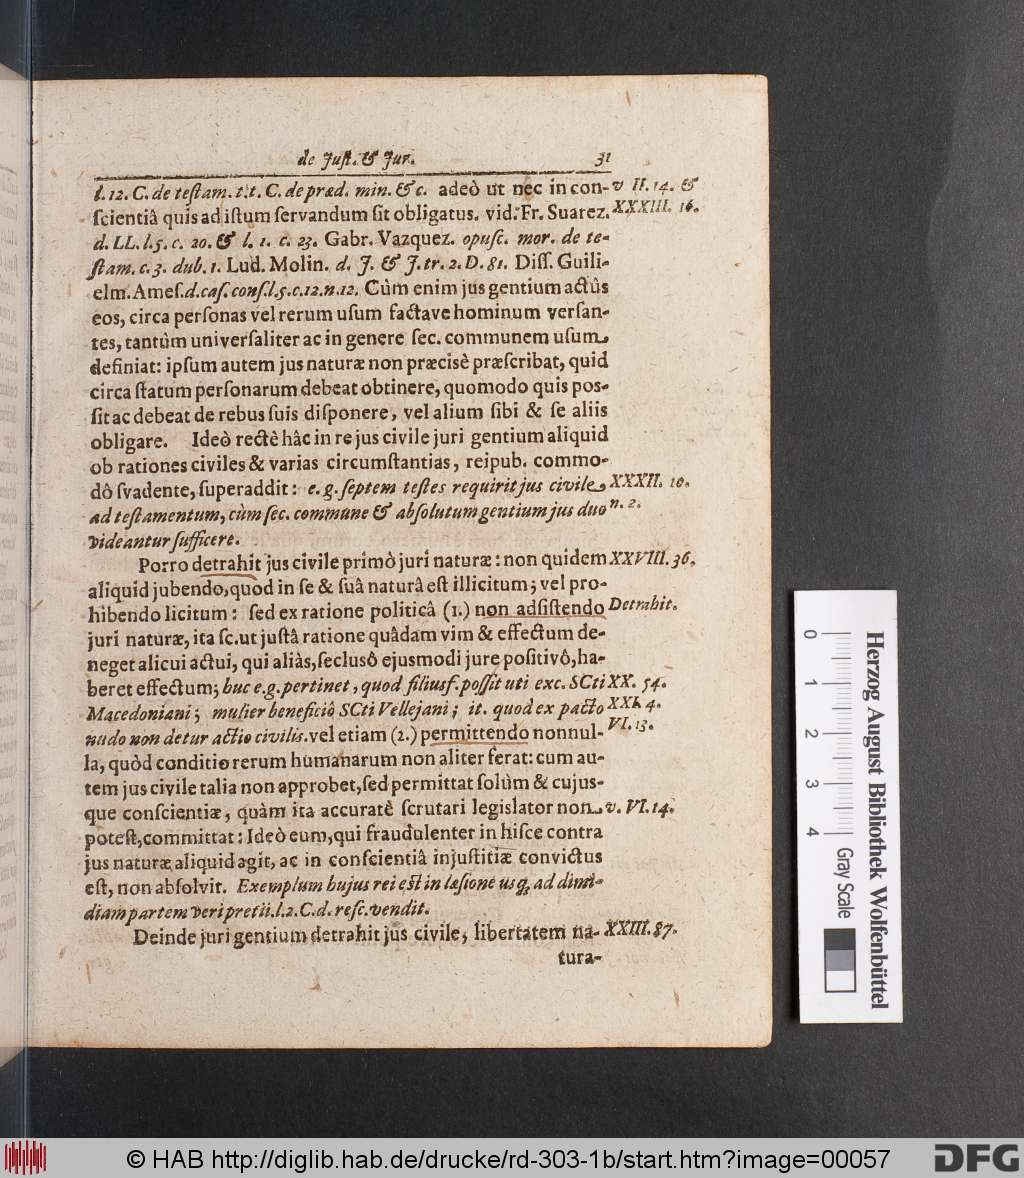 de Juſt. & Jur. 31
l. 12. C. de teſtam. t. t. C. de præd. min. & c. adeò ut nec in con- v II. 14. &
ſcientiâ quis ad iſtum ſervandum ſit obligatus. vid. Fr. Suarez. XXXIII. 16.
d. LL. l. 5. c. 20. & l. 1. c. 23. Gabr. Vazquez. opuſc. mor. de te-
ſtam. c. 3. dub. 1. Lud. Molin. d. J. & J. tr. 2. D. 81. Diſſ. Guili-
elm. Ameſ. d. caſ. conſ. l. 5. c. 12. n. 12. Cùm enim jus gentium actûs
eos, circa perſonas vel rerum uſum factave hominum verſan-
tes, tantùm univerſaliter ac in genere ſec. communem uſum
definiat: ipſum autem jus naturæ non præcisè præſcribat, quid
circa ſtatum perſonarum debeat obtinere, quomodo quis poſ-
ſit ac debeat de rebus ſuis diſponere, vel alium ſibi & ſe aliis
obligare. Ideò rectè hâc in re jus civile juri gentium aliquid
ob rationes civiles & varias circumſtantias, reipub. commo-
dô ſvadente, ſuperaddit: e. g. ſeptem teſtes requirit jus civile XXXII. 10.
ad teſtamentum, cùm ſec. commune & abſolutum gentium jus duo n. 2.
videantur ſufficere.
Porro detrahit jus civile primò juri naturæ: non quidem XXVIII. 36.
aliquid jubendo, quod in ſe & ſuâ naturâ eſt illicitum; vel pro-
hibendo licitum: ſed ex ratione politicâ (1.) non adſiſtendo Detrahit.
juri naturæ, ita ſc. ut juſtâ ratione quâdam vim & effectum de-
neget alicui actui, qui aliàs, ſecluſô ejusmodi jure poſitivô, ha-
beret effectum; huc e. g. pertinet, quod filiusf. poſſit uti exc. SCti XX. 54.
Macedoniani; mulier beneficiô SCti Vellejani; it. quod ex pacto XXI. 4.
nudo non detur actio civilis. vel etiam (2.) permittendo nonnul- VI. 13.
la, quòd conditio rerum humanarum non aliter ferat: cum au-
tem jus civile talia non approbet, ſed permittat ſolùm & cujus-
que conſcientiæ, quàm ita accuratè ſcrutari legislator non v. VI. 14.
poteſt, committat: Ideò eum, qui fraudulenter in hiſce contra
jus naturæ aliquid agit, ac in conſcientiâ injuſtitiæ convictus
eſt, non abſolvit. Exemplum hujus rei eſt in læſione usq; ad dimi-
diam partem veri pretii. l. 2. C. d. reſc. vendit.
Deinde juri gentium detrahit jus civile, libertatem na- XXIII. 87.
tura-
0 1 2 3 4
Gray Scale
Herzog August Bibliothek Wolfenbüttel
© HAB http://diglib.hab.de/drucke/rd-303-1b/start.htm?image=00057
DFG